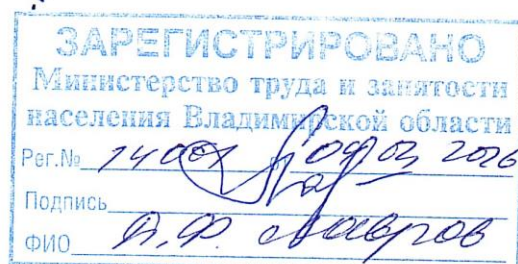 ЗАРЕГИСТРИРОВАНО
Министерство труда и занятости
населения Владимирской области
Рег.№ 09 02 2026
Подпись
ФИО А.Ф. Лавров